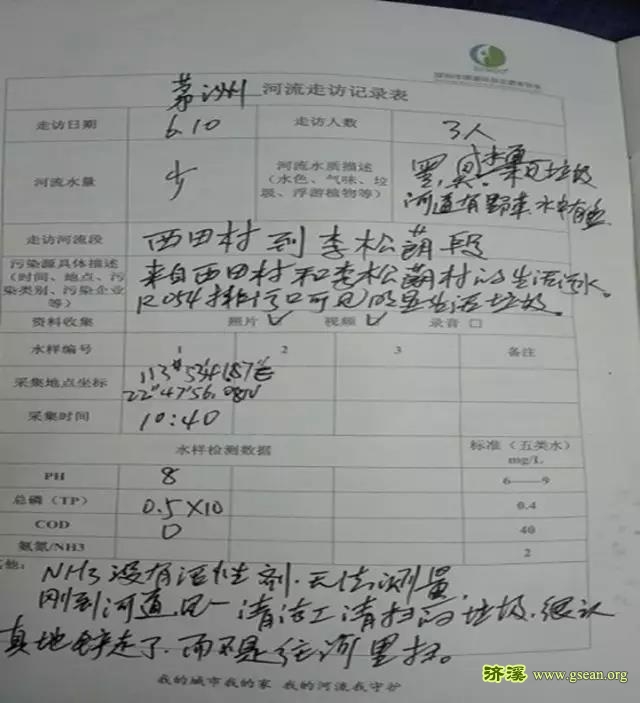 茅洲 河流走访记录表
走访日期 6.10 走访人数 3人
河流水量 少 河流水质描述（水色、气味、垃圾、浮游植物等）
河道有野草.水中有鱼
走访河流段 西田村到李松蓢段
污染源具体描述（时间、地点、污染类别、污染企业等）
来自西田村和李松蓢村的生活污水。
R054排污口可见明显生活垃圾。
资料收集 照片 视频 录音 □
水样编号 1 2 3 备注
采集地点坐标
采集时间 10:40
水样检测数据 标准（五类水）mg/L
PH 8 6——9
总磷（TP） 0.5X10 0.4
COD 0 40
氨氮/NH3 2
其他: NH3没有活性剂.无法测量,
刚到河道见一清洁工清扫的垃圾.很认
真地 走了.而不是往河里扫。
我的城市我的家 我的河流我守护
济溪 www.gsean.org